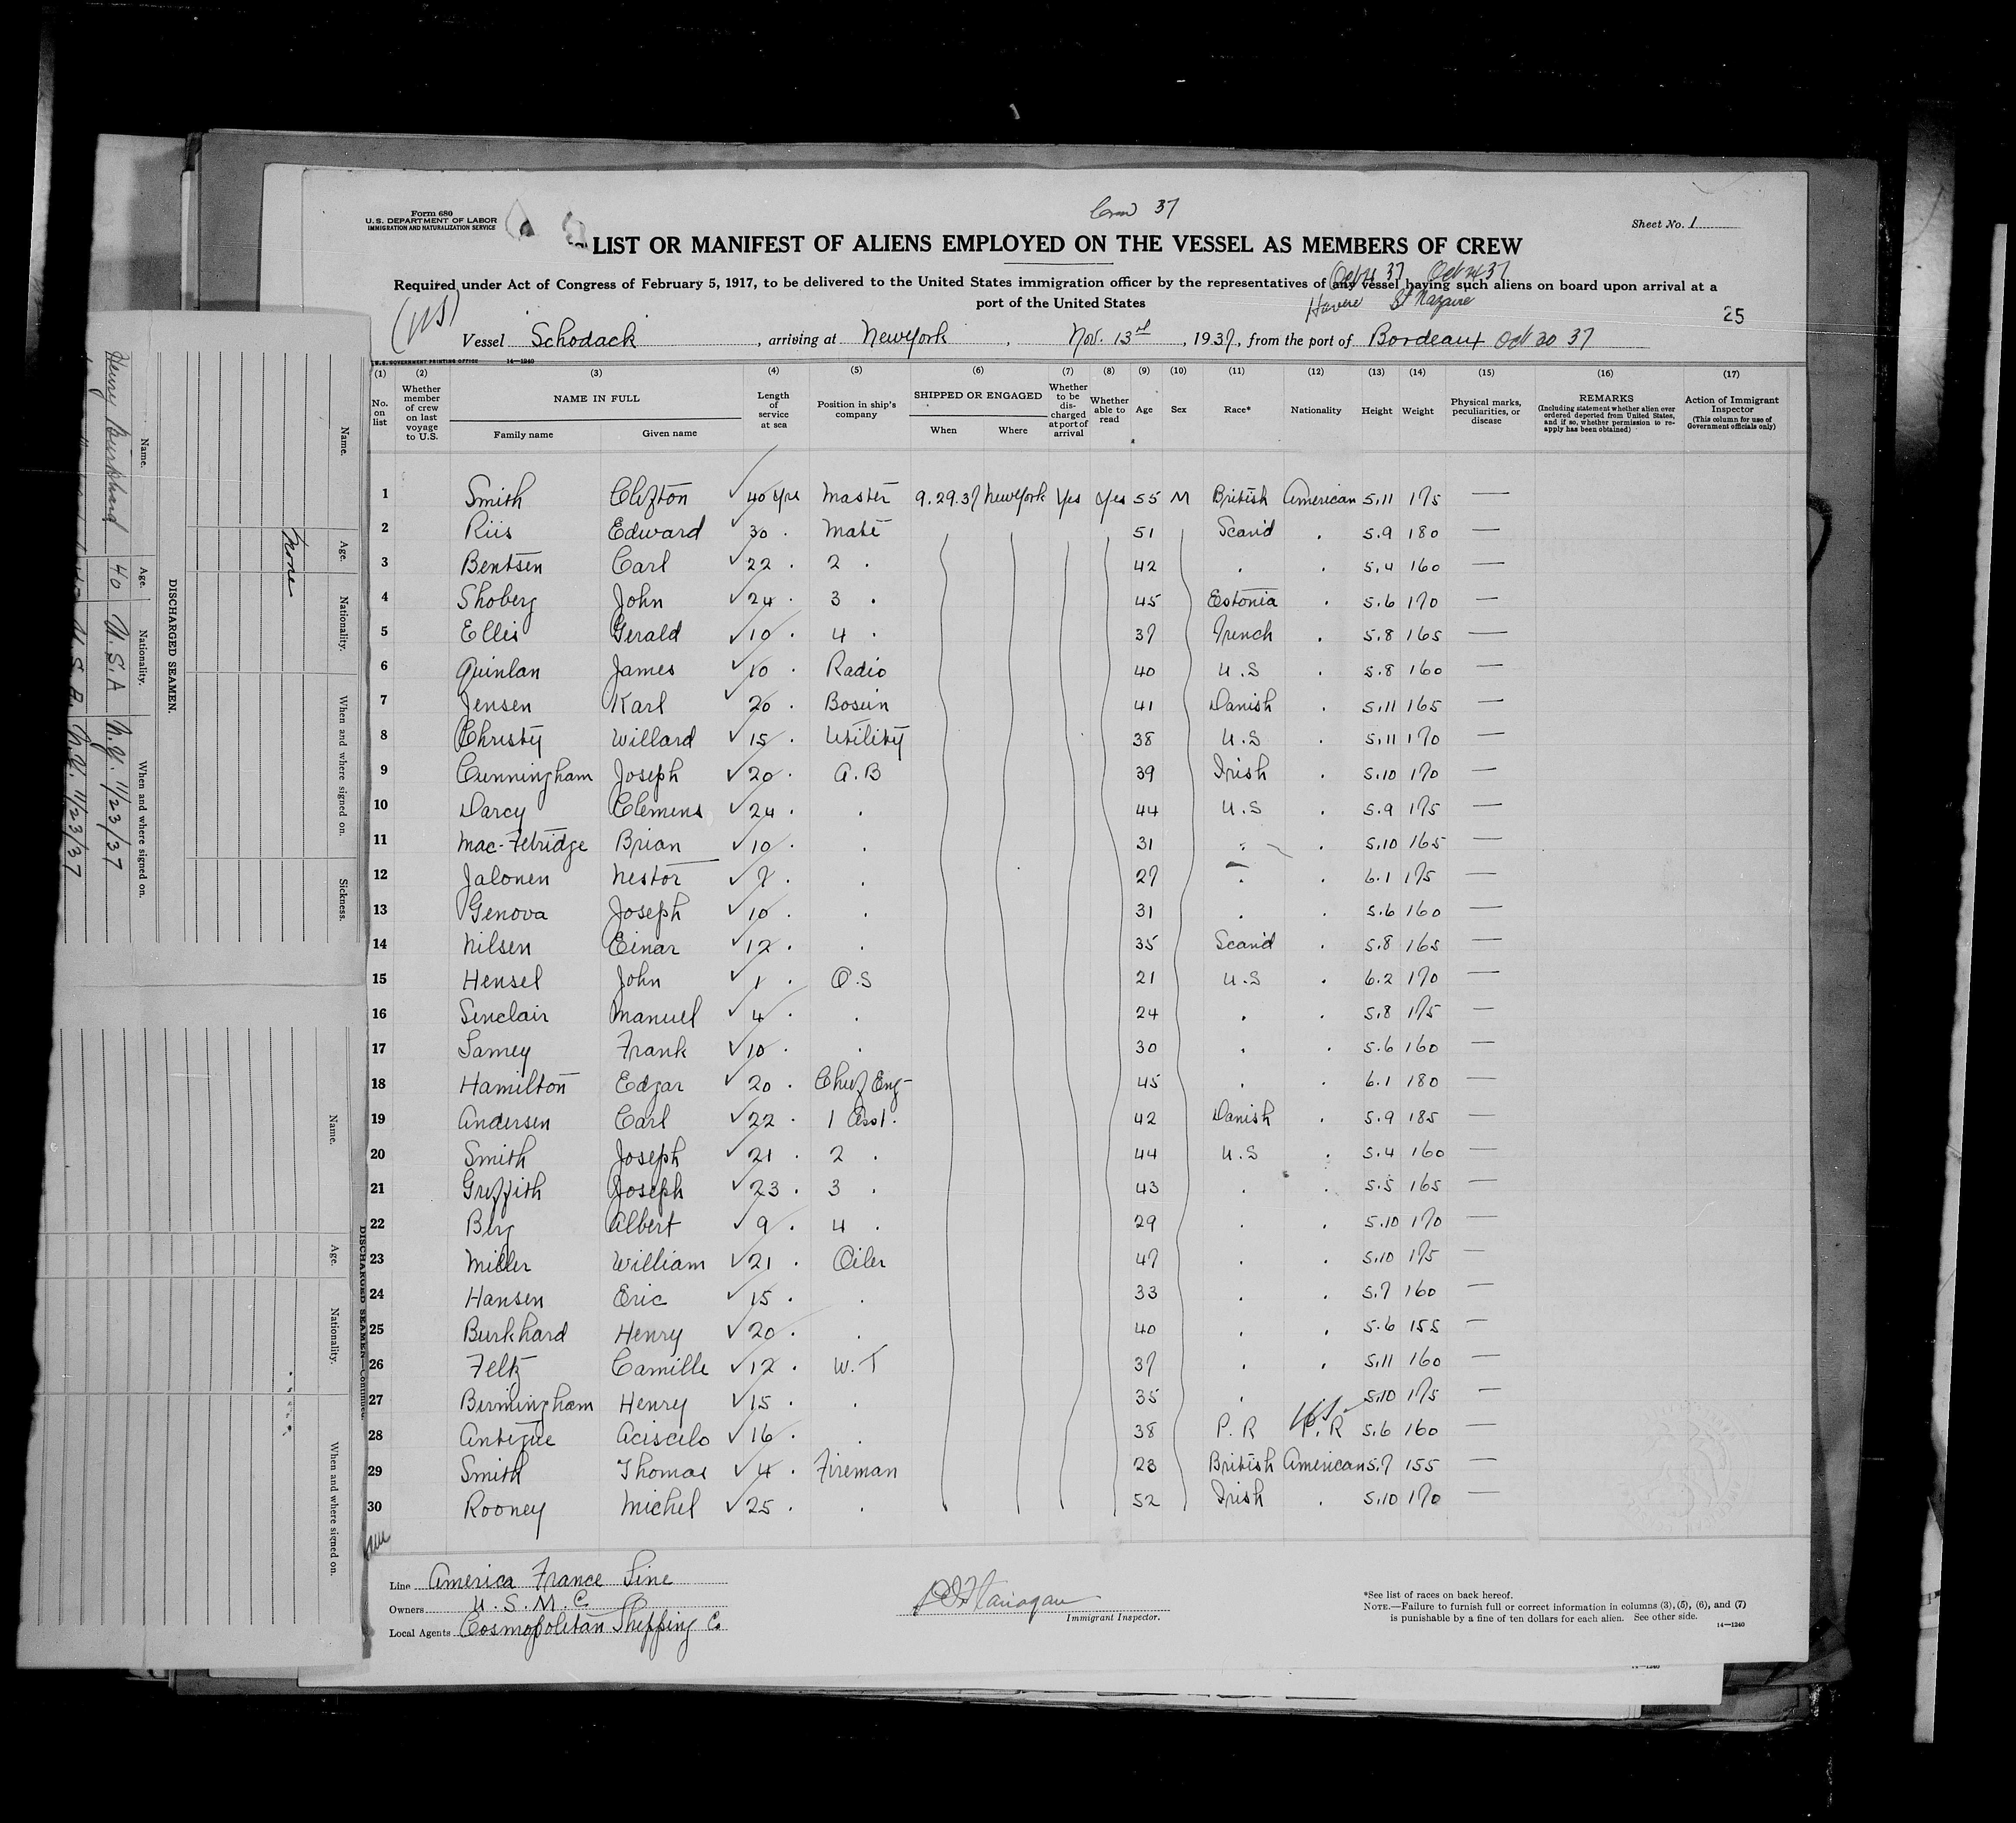 Form 680
U.S. DEPARTMENT OF LABOR
IMMIGRATION AND NATURALIZATION SERVICE
Crew 37
Sheet No. 1
LIST OR MANIFEST OF ALIENS EMPLOYED ON THE VESSEL AS MEMBERS OF CREW
Required under Act of Congress of February 5, 1917, to be delivered to the United States immigration officer by the representatives of any vessel having such aliens on board upon arrival at a
port of the United States
Havre St Nazaire
25
Vessel Schodack, arriving at New York, Nov. 13, 1937, from the port of Bordeaux Oct 30 37
U.S. GOVERNMENT PRINTING OFFICE 14—1240
(1) (2) (3) (4) (5) (6) (7) (8) (9) (10) (11) (12) (13) (14) (15) (16) (17)
No. on list
Whether member of crew on last voyage to U.S.
NAME IN FULL
Family name Given name
Length of service at sea
Position in ship's company
SHIPPED OR ENGAGED
When Where
Whether to be discharged at port of arrival
Whether able to read
Age
Sex
Race*
Nationality
Height
Weight
Physical marks, peculiarities, or disease
REMARKS
(Including statement whether alien ever ordered deported from United States, and if so, whether permission to reapply has been obtained)
Action of Immigrant Inspector
(This column for use of Government officials only)
1 Smith Clifton 40 yrs Master 9.29.37 New York Yes Yes 55 M British American 5.11 175 —
2 Riis Edward 30 . Mate 51 Scand . 5.9 180 —
3 Bentsen Carl 22 . 2 . 42 . . 5.4 160 —
4 Shoberg John 24 . 3 . 45 Estonia . 5.6 170 —
5 Ellis Gerald 10 . 4 . 37 French . 5.8 165 —
6 Quinlan James 10 . Radio 40 U.S . 5.8 160 —
7 Jensen Karl 20 . Bosun 41 Danish . 5.11 165 —
8 Christy Willard 15 . Utility 38 U.S . 5.11 170 —
9 Cunningham Joseph 20 . A.B 39 Irish . 5.10 170 —
10 Darcy Clemens 24 . . 44 U.S . 5.9 175 —
11 Mac-Fetridge Brian 10 . . 31 . . 5.10 165 —
12 Jalonen Nestor 7 . . 27 . . 6.1 175 —
13 Genova Joseph 10 . . 31 . . 5.6 160 —
14 Nilsen Einar 12 . . 35 Scand . 5.8 165 —
15 Hensel John 1 . O.S 21 U.S . 6.2 170 —
16 Sinclair Manuel 4 . . 24 . . 5.8 175 —
17 Samey Frank 10 . . 30 . . 5.6 160 —
18 Hamilton Edgar 20 . Chief Eng- 45 . . 6.1 180 —
19 Andersen Carl 22 . 1 Asst. 42 Danish . 5.9 185 —
20 Smith Joseph 21 . 2 . 44 U.S . 5.4 160 —
21 Griffith Joseph 23 . 3 . 43 . . 5.5 165 —
22 Berg Albert 9 . 4 . 29 . . 5.10 170 —
23 Miller William 21 . Oiler 47 . . 5.10 175 —
24 Hansen Eric 15 . . 33 . . 5.7 160 —
25 Burkhard Henry 20 . . 40 . . 5.6 155 —
26 Feltz Camille 12 . W.T 37 . . 5.11 160 —
27 Birmingham Henry 15 . . 35 . . 5.10 175 —
28 Antigue Aciscilo 16 . . 38 P.R P.R 5.6 160 —
29 Smith Thomas 4 . Fireman 23 British American 5.7 155 —
30 Rooney Michel 25 . . 52 Irish . 5.10 170 —
Line America France Line
Owners U.S.M.C.
Local Agents Cosmopolitan Shipping Co
Flanagan
Immigrant Inspector.
*See list of races on back hereof.
NOTE.—Failure to furnish full or correct information in columns (3), (5), (6), and (7)
is punishable by a fine of ten dollars for each alien. See other side.
14—1240
Name. Age. Nationality. When and where signed on. Sickness.
None
DISCHARGED SEAMEN.
Name. Age. Nationality. When and where signed on.
Henry Burkhard 40 U.S.A N.Y. 11/23/37
N.Y. 11/23/37
DISCHARGED SEAMEN—Continued.
Name. Age. Nationality. When and where signed on.